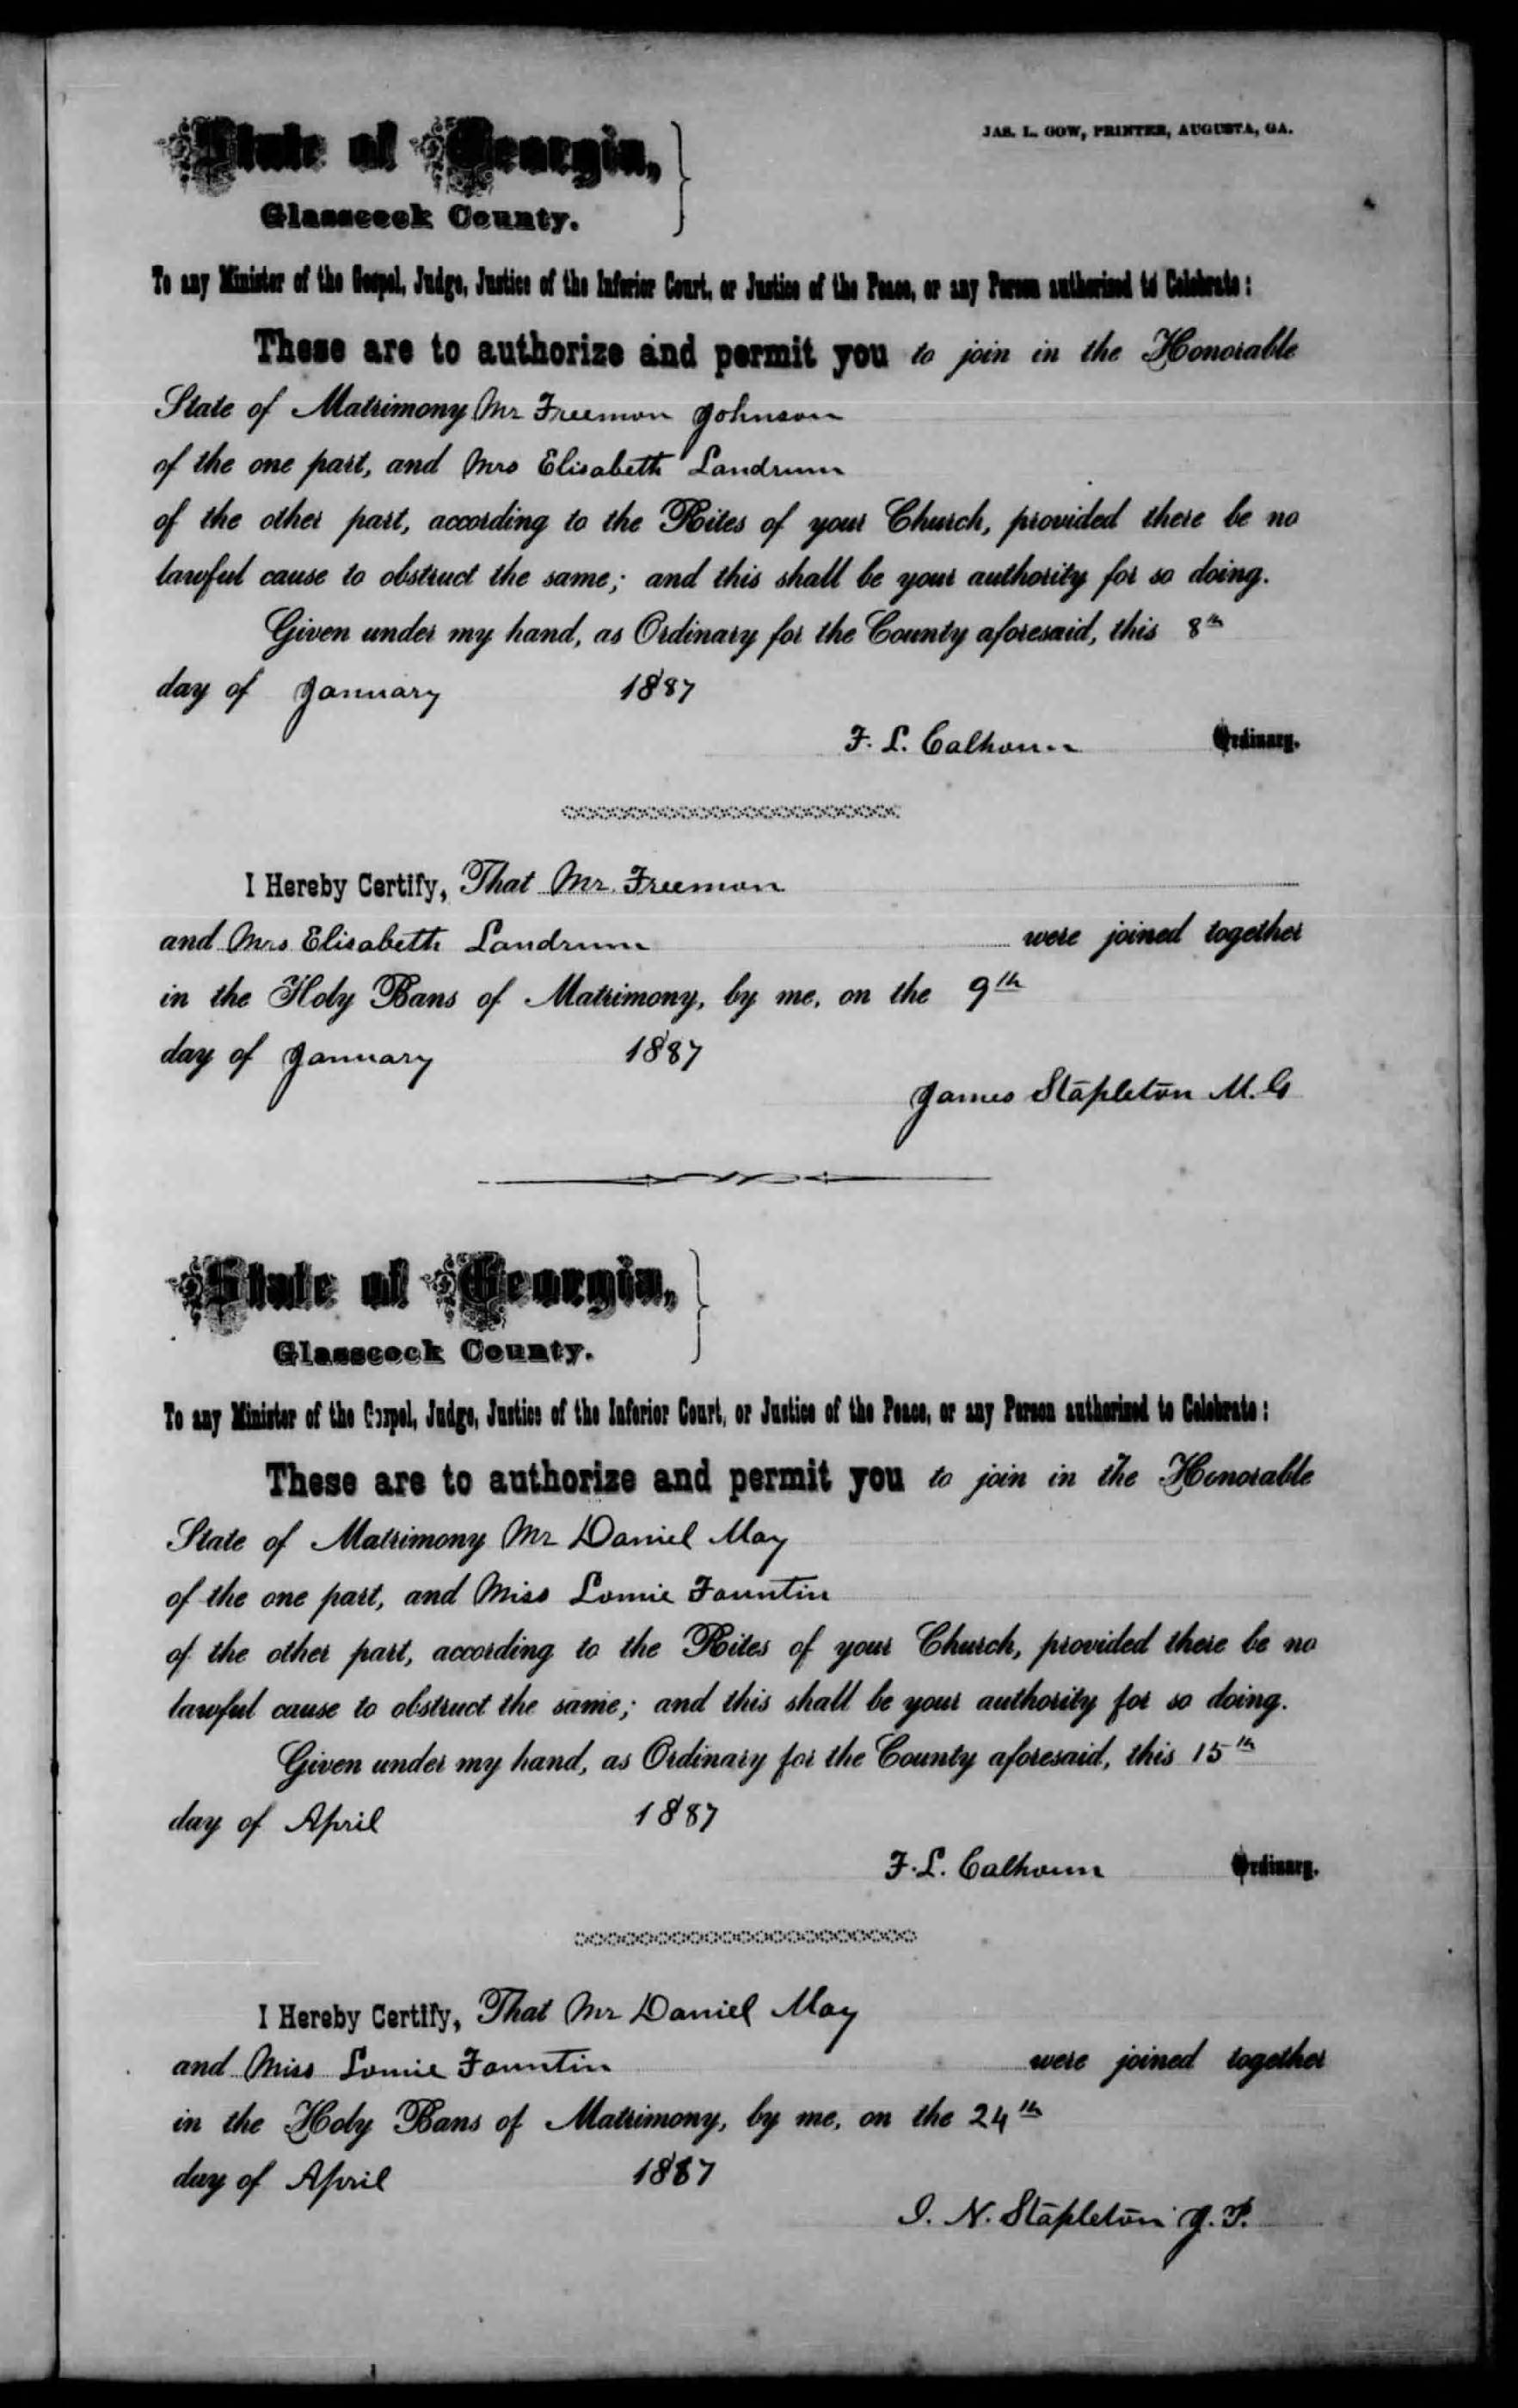 JAS. L. GOW, PRINTER, AUGUSTA, GA.
State of Georgia,
Glasscock County.
To any Minister of the Gospel, Judge, Justice of the Inferior Court, or Justice of the Peace, or any Person authorized to Celebrate:
These are to authorize and permit you to join in the Honorable
State of Matrimony Mr Freemon Johnson
of the one part, and Mrs Elisabeth Landrum
of the other part, according to the Rites of your Church, provided there be no
lawful cause to obstruct the same; and this shall be your authority for so doing.
Given under my hand, as Ordinary for the County aforesaid, this 8th
day of January 1887
F. L. Calhoun Ordinary.
I Hereby Certify, That Mr. Freemon
and Mrs Elisabeth Landrum were joined together
in the Holy Bans of Matrimony, by me, on the 9th
day of January 1887
James Stapleton M. G
State of Georgia,
Glasscock County.
To any Minister of the Gospel, Judge, Justice of the Inferior Court, or Justice of the Peace, or any Person authorized to Celebrate:
These are to authorize and permit you to join in the Honorable
State of Matrimony Mr Daniel May
of the one part, and Miss Lomie Fountin
of the other part, according to the Rites of your Church, provided there be no
lawful cause to obstruct the same; and this shall be your authority for so doing.
Given under my hand, as Ordinary for the County aforesaid, this 15th
day of April 1887
F. L. Calhoun Ordinary.
I Hereby Certify, That Mr Daniel May
and Miss Lomie Fountin were joined together
in the Holy Bans of Matrimony, by me, on the 24th
day of April 1887
I. N. Stapleton J. P.